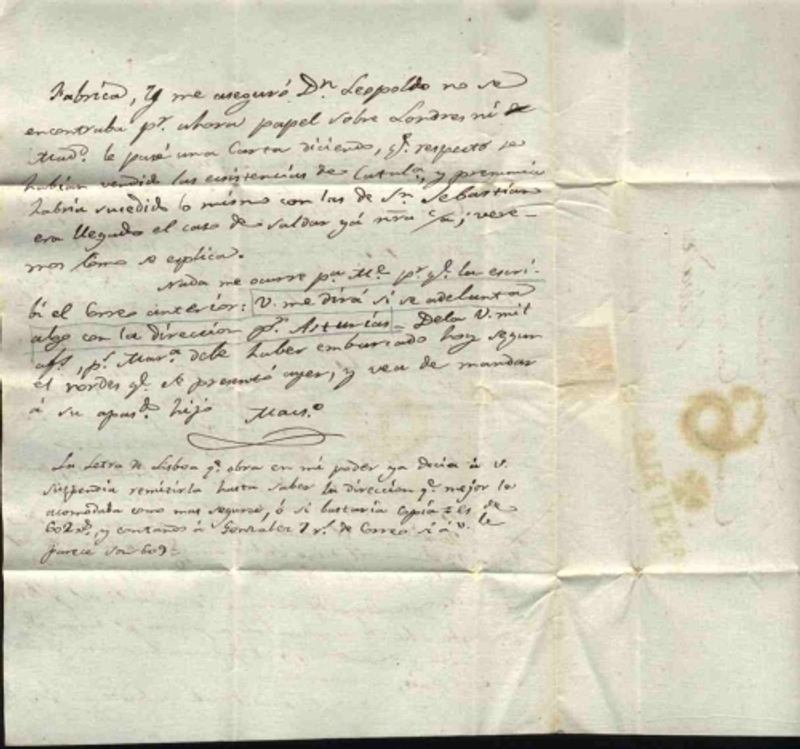 Fabrica, y me aseguró Dn. Leopoldo no se
encontraba pr. ahora papel sobre Londres ni
Madd. le pasé una Carta diciendo, qe. respecto se
habian vendido las ecsistencias de Catala. y
habria sucedido lo mismo con las de Sn. Sebastian
era llegado el caso de saldar yá nra c/a; vere-
mos como se esplica.
Nada me ocurre pa. Me. pr. qe. la escri-
bi el Correo anterior: V. me dirá si se adelanta
algo con la direccion pr. Asturias. Dela V. mil
afs., pr. debe haber embarcado hoy segun
el qe. se presentó ayer, y vea de mandar
á su apasdo. hijo
La Letra de Lisboa qe. obra en mi poder ya decia á V.
suspendia remitirla hasta saber la direccion qe. mejor le
acomodaba como mas seguro, ó si bastaria copia = es de
602, y contando á Gonzalez 7 rs. de Correo si á V. le
parece son 609=